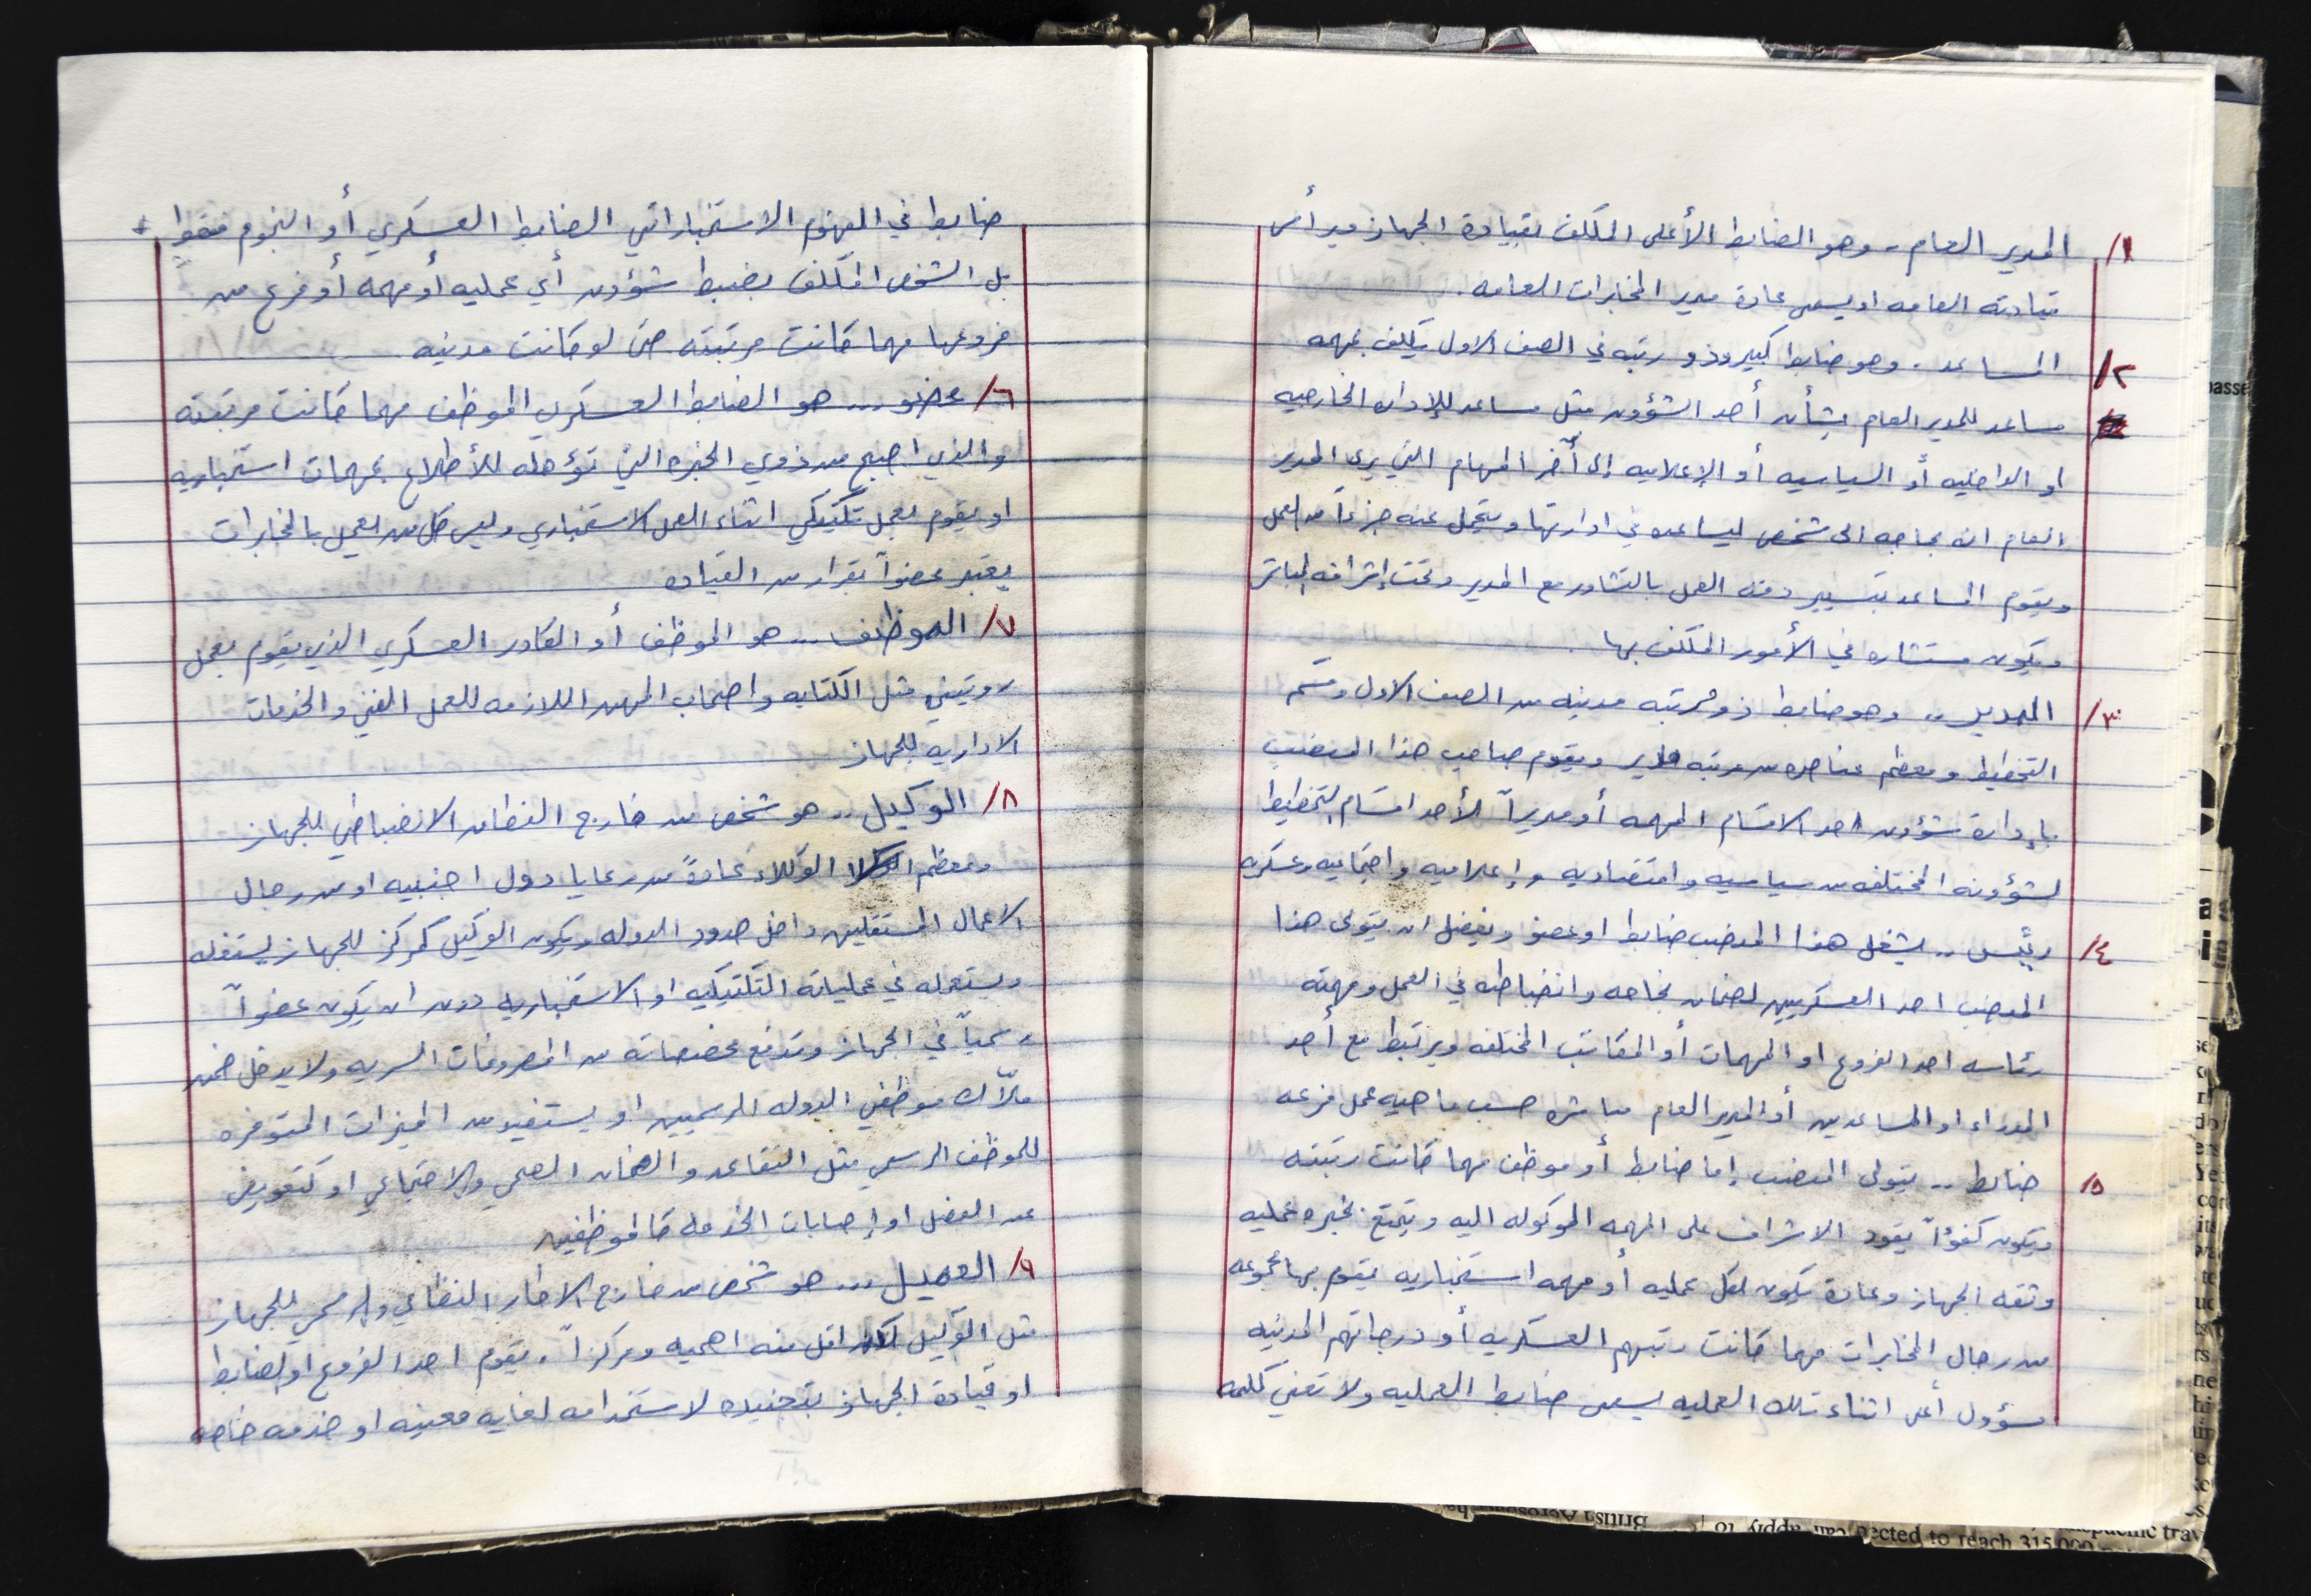 ١/ المدير العام - وهو الضابط الأعلى المكلف بقيادة الجهاز ويرأس
قيادته العامه او يسمى عادة مدير المخابرات العامه .
٢/ المساعد . وهو ضابط كبير وذو رتبه في الصف الاول يكلف بمهمه
مساعد للمدير العام بشأن أحد الشؤون مثل مساعد للإداره الخارجيه
او الداخليه أو السياسيه أو الإعلاميه إلى آخر المهام التي يرى المدير
العام انه بحاجه الى شخص ليساعده في ادارتها ويتحمل عنه جزءاً من العمل
ويقوم المساعد بتسيير دفة العمل بالتشاور مع المدير وتحت إشرافه المباشر
ويكون مستشاره في الأمور المكلف بها .
٣/ المدير .. وهو ضابط ذو مرتبه مدنيه من الصف الاول وقسم
التخطيط ومعظم عناصره من مرتبه مدير ويقوم صاحب هذا المنصب
بإدارة شؤون احد الاقسام المهمه أو مديراً لأحد اقسام التخطيط
لشؤونه المختلفه من سياسيه واقتصاديه وإعلاميه واجتماعيه وعسكريه
٤/ رئيس .. يشغل هذا المنصب ضابط او عضو ويفضل ان يتولى هذا
المنصب احد العسكريين لضمان نجاحه وانضباطه في العمل ومهمته
رئاسه احد الفروع او المهمات أو المكاتب المختلفه ويرتبط مع أحد
المدراء او المساعدين أو المدير العام مباشره حسب ماهيه عمل فرعه
٥/ ضابط .. يتولى المنصب إما ضابط أو موظف مهما كانت رتبته
ويكون كفؤاً يقود الاشراف على المهمه الموكوله اليه ويتمتع بخبره عمليه
وثقه الجهاز وعادة يكون لكل عمليه أو مهمه استخباريه يقوم بها مجموعه
من رجال المخابرات مهما كانت رتبهم العسكريه أو درجاتهم المدنيه
مسؤول أعلى اثناء تلك العمليه يسمى ضابط العمليه ولا تعني كلمه
ضابط في المفهوم الاستخباراتي الضابط العسكري أو النجوم فقط
بل الشخص المكلف بضبط شؤون أي عمليه أو مهمه أو فرع من
فروعها مهما كانت مرتبته حتى لو كانت مدنيه
٦/ عضو ... هو الضابط العسكري الموظف مهما كانت مرتبته
والذي اصبح من ذوي الخبره التي تؤهله للأطلاع بمهمات استخباريه
او يقوم بعمل تكتيكي اثناء العمل الاستخباري وليس كل من يعمل بالمخابرات
يعتبر عضواً بقرار من القياده
٧/ الموظف .. هو الموظف أو الكادر العسكري الذي يقوم بعمل
روتيني مثل الكتابه واصحاب المهن اللازمه للعمل الفني والخدمات
الاداريه للجهاز
٨/ الوكيل .. هو شخص من خارج النطاق الانضباطي للجهاز
ومعظم الوكلاء عادةً من رعايا دول اجنبيه او من رجال
الاعمال المستقلين داخل حدود الدوله ويكون الوكيل كمركز للجهاز يستغله
ويستعمله في عملياته التكتيكيه او الاستخباريه دون ان يكون عضواً
رسمياً في الجهاز وتدفع مخصصاته من المصروفات السريه ولا يدخل ضمن
ملاك موظفي الدوله الرسميين او يستفيد من الميزات المتوفره
للموظف الرسمي مثل التقاعد والضمان الصحي والاجتماعي او كتعويض
عن الفصل او إصابات الخدمه كالموظفين
٩/ العميل ... هو شخص من خارج الاطار النظامي والرسمي للجهاز
مثل الوكيل لكن اقل منه اهميه ومركزاً . يقوم احد الفروع او الضابط
او قيادة الجهاز بتجنيده لاستخدامه لغايه معينه او خدمه خاصه